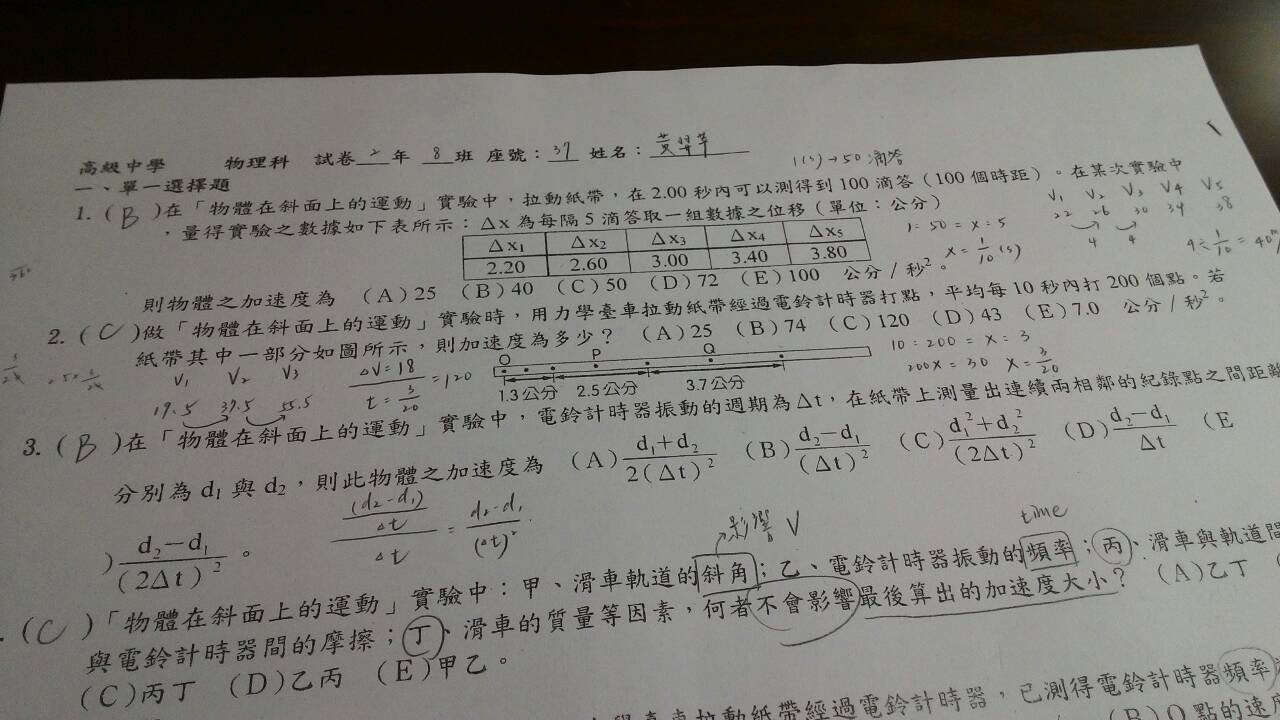 高級中學 物理科 試卷 2 年 8 班 座號：37 姓名：
一、單一選擇題
1(s)→50滴答
1. ( B )在「物體在斜面上的運動」實驗中，拉動紙帶，在 2.00 秒內可以測得到 100 滴答（100 個時距）。在某次實驗中
，量得實驗之數據如下表所示：Δx 為每隔 5 滴答取一組數據之位移（單位：公分）
Δx₁ Δx₂ Δx₃ Δx₄ Δx₅
2.20 2.60 3.00 3.40 3.80
V₁ V₂ V₃ V₄ V₅
22 26 30 34 38
4 4
1：50 = x：5
x = 1/10 (s)
4÷1/10 = 40
則物體之加速度為 (A)25 (B)40 (C)50 (D)72 (E)100 公分／秒²。
2. ( C )做「物體在斜面上的運動」實驗時，用力學臺車拉動紙帶經過電鈴計時器打點，平均每 10 秒內打 200 個點。若
紙帶其中一部分如圖所示，則加速度為多少？ (A)25 (B)74 (C)120 (D)43 (E)7.0 公分／秒²。
O P Q
1.3公分 2.5公分 3.7公分
V₁ V₂ V₃
19.5 37.5 55.5
ΔV=18
t=3/20
=120
10：200 = x：3
200x = 30 x = 3/20
3. ( B )在「物體在斜面上的運動」實驗中，電鈴計時器振動的週期為Δt，在紙帶上測量出連續兩相鄰的紀錄點之間距離
分別為 d₁ 與 d₂，則此物體之加速度為 (A) d₁+d₂/2(Δt)² (B) d₂−d₁/(Δt)² (C) d₁²+d₂²/(2Δt)² (D) d₂−d₁/Δt (E
) d₂−d₁/(2Δt)² 。
(d₂-d₁)/Δt/Δt = d₂-d₁/(Δt)²
影響 V
time
. ( C )「物體在斜面上的運動」實驗中：甲、滑車軌道的斜角；乙、電鈴計時器振動的頻率；丙、滑車與軌道間
與電鈴計時器間的摩擦；丁、滑車的質量等因素，何者不會影響最後算出的加速度大小？ (A)乙丁 (
(C)丙丁 (D)乙丙 (E)甲乙。
臺車拉動紙帶經過電鈴計時器，已測得電鈴計時器頻率
(B)Q 點的速